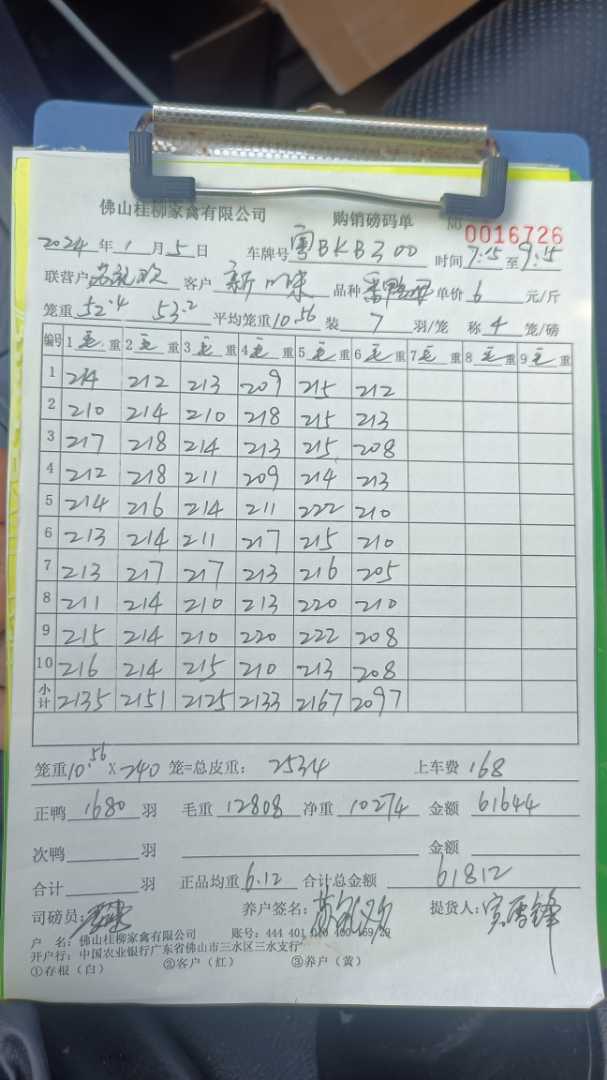 佛山桂柳家禽有限公司 购销磅码单 No 0016726
2024年1月5日 车牌号 粤BKB300 时间 7:15至9:15
联营户 客户 新川味 品种 单价 6 元/斤
笼重 52.4 53.2 平均笼重10.56 装 7 羽/笼 称 4 笼/磅
编号 1毛重 2毛重 3毛重 4毛重 5毛重 6毛重 7毛重 8毛重 9毛重
1 214 212 213 209 215 212
2 210 214 210 218 215 213
3 217 218 214 213 215 208
4 212 218 211 209 214 213
5 214 216 214 211 222 210
6 213 214 211 217 215 210
7 213 217 217 213 216 205
8 211 214 210 213 220 210
9 215 214 210 220 222 208
10 216 214 215 210 213 208
小计 2135 2151 2125 2133 2167 2097
笼重10.56 X 240 笼=总皮重: 2534 上车费 168
正鸭 1680 羽 毛重 12808 净重 10274 金额 61644
次鸭 羽 金额
合计 羽 正品均重 6.12 合计总金额 61812
司磅员: 养户签名: 提货人:
户 名:佛山桂柳家禽有限公司 账号:444 401
开户行:中国农业银行广东省佛山市三水区三水支行
①存根(白) ②客户(红) ③养户(黄)